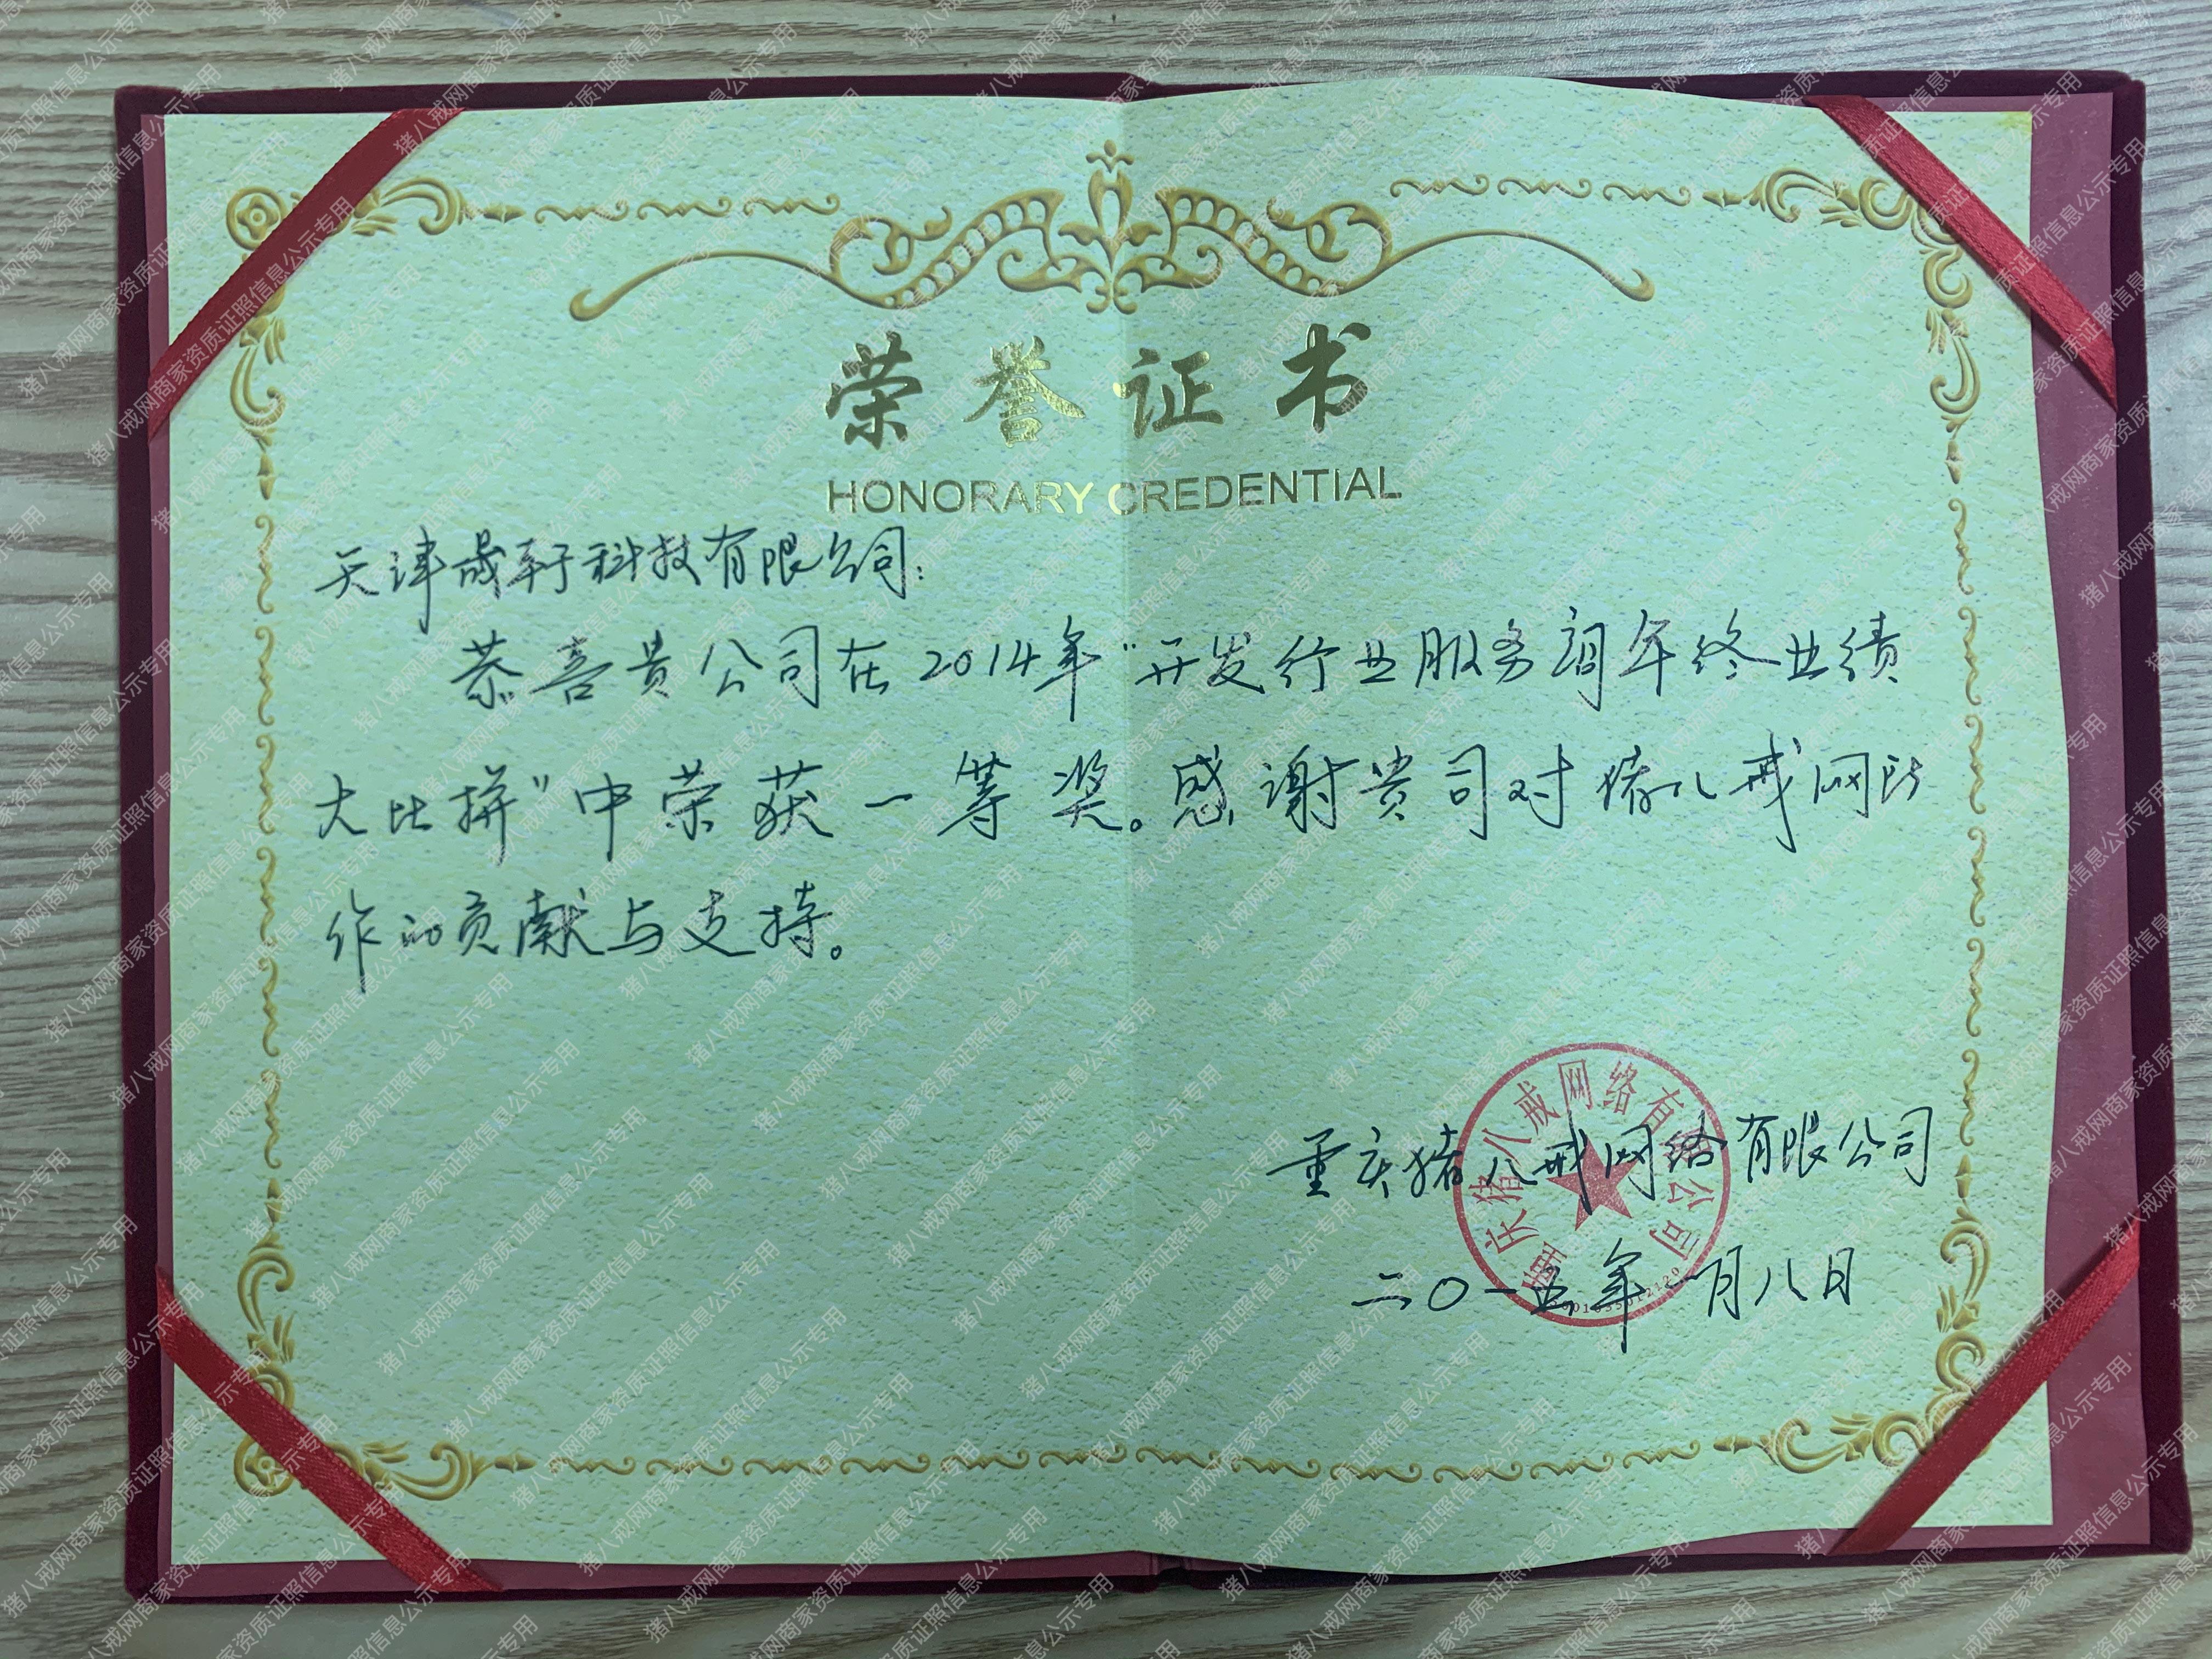 荣誉证书
HONORARY CREDENTIAL
天津晟轩科技有限公司:
恭喜贵公司在2014年“开发行业服务商年终业绩
大比拼”中荣获一等奖。感谢贵司对猪八戒网所
作的贡献与支持。
重庆猪八戒网络有限公司
二〇一五年一月八日
重庆猪八戒网络有限公司
猪八戒网商家资质证照信息公示专用